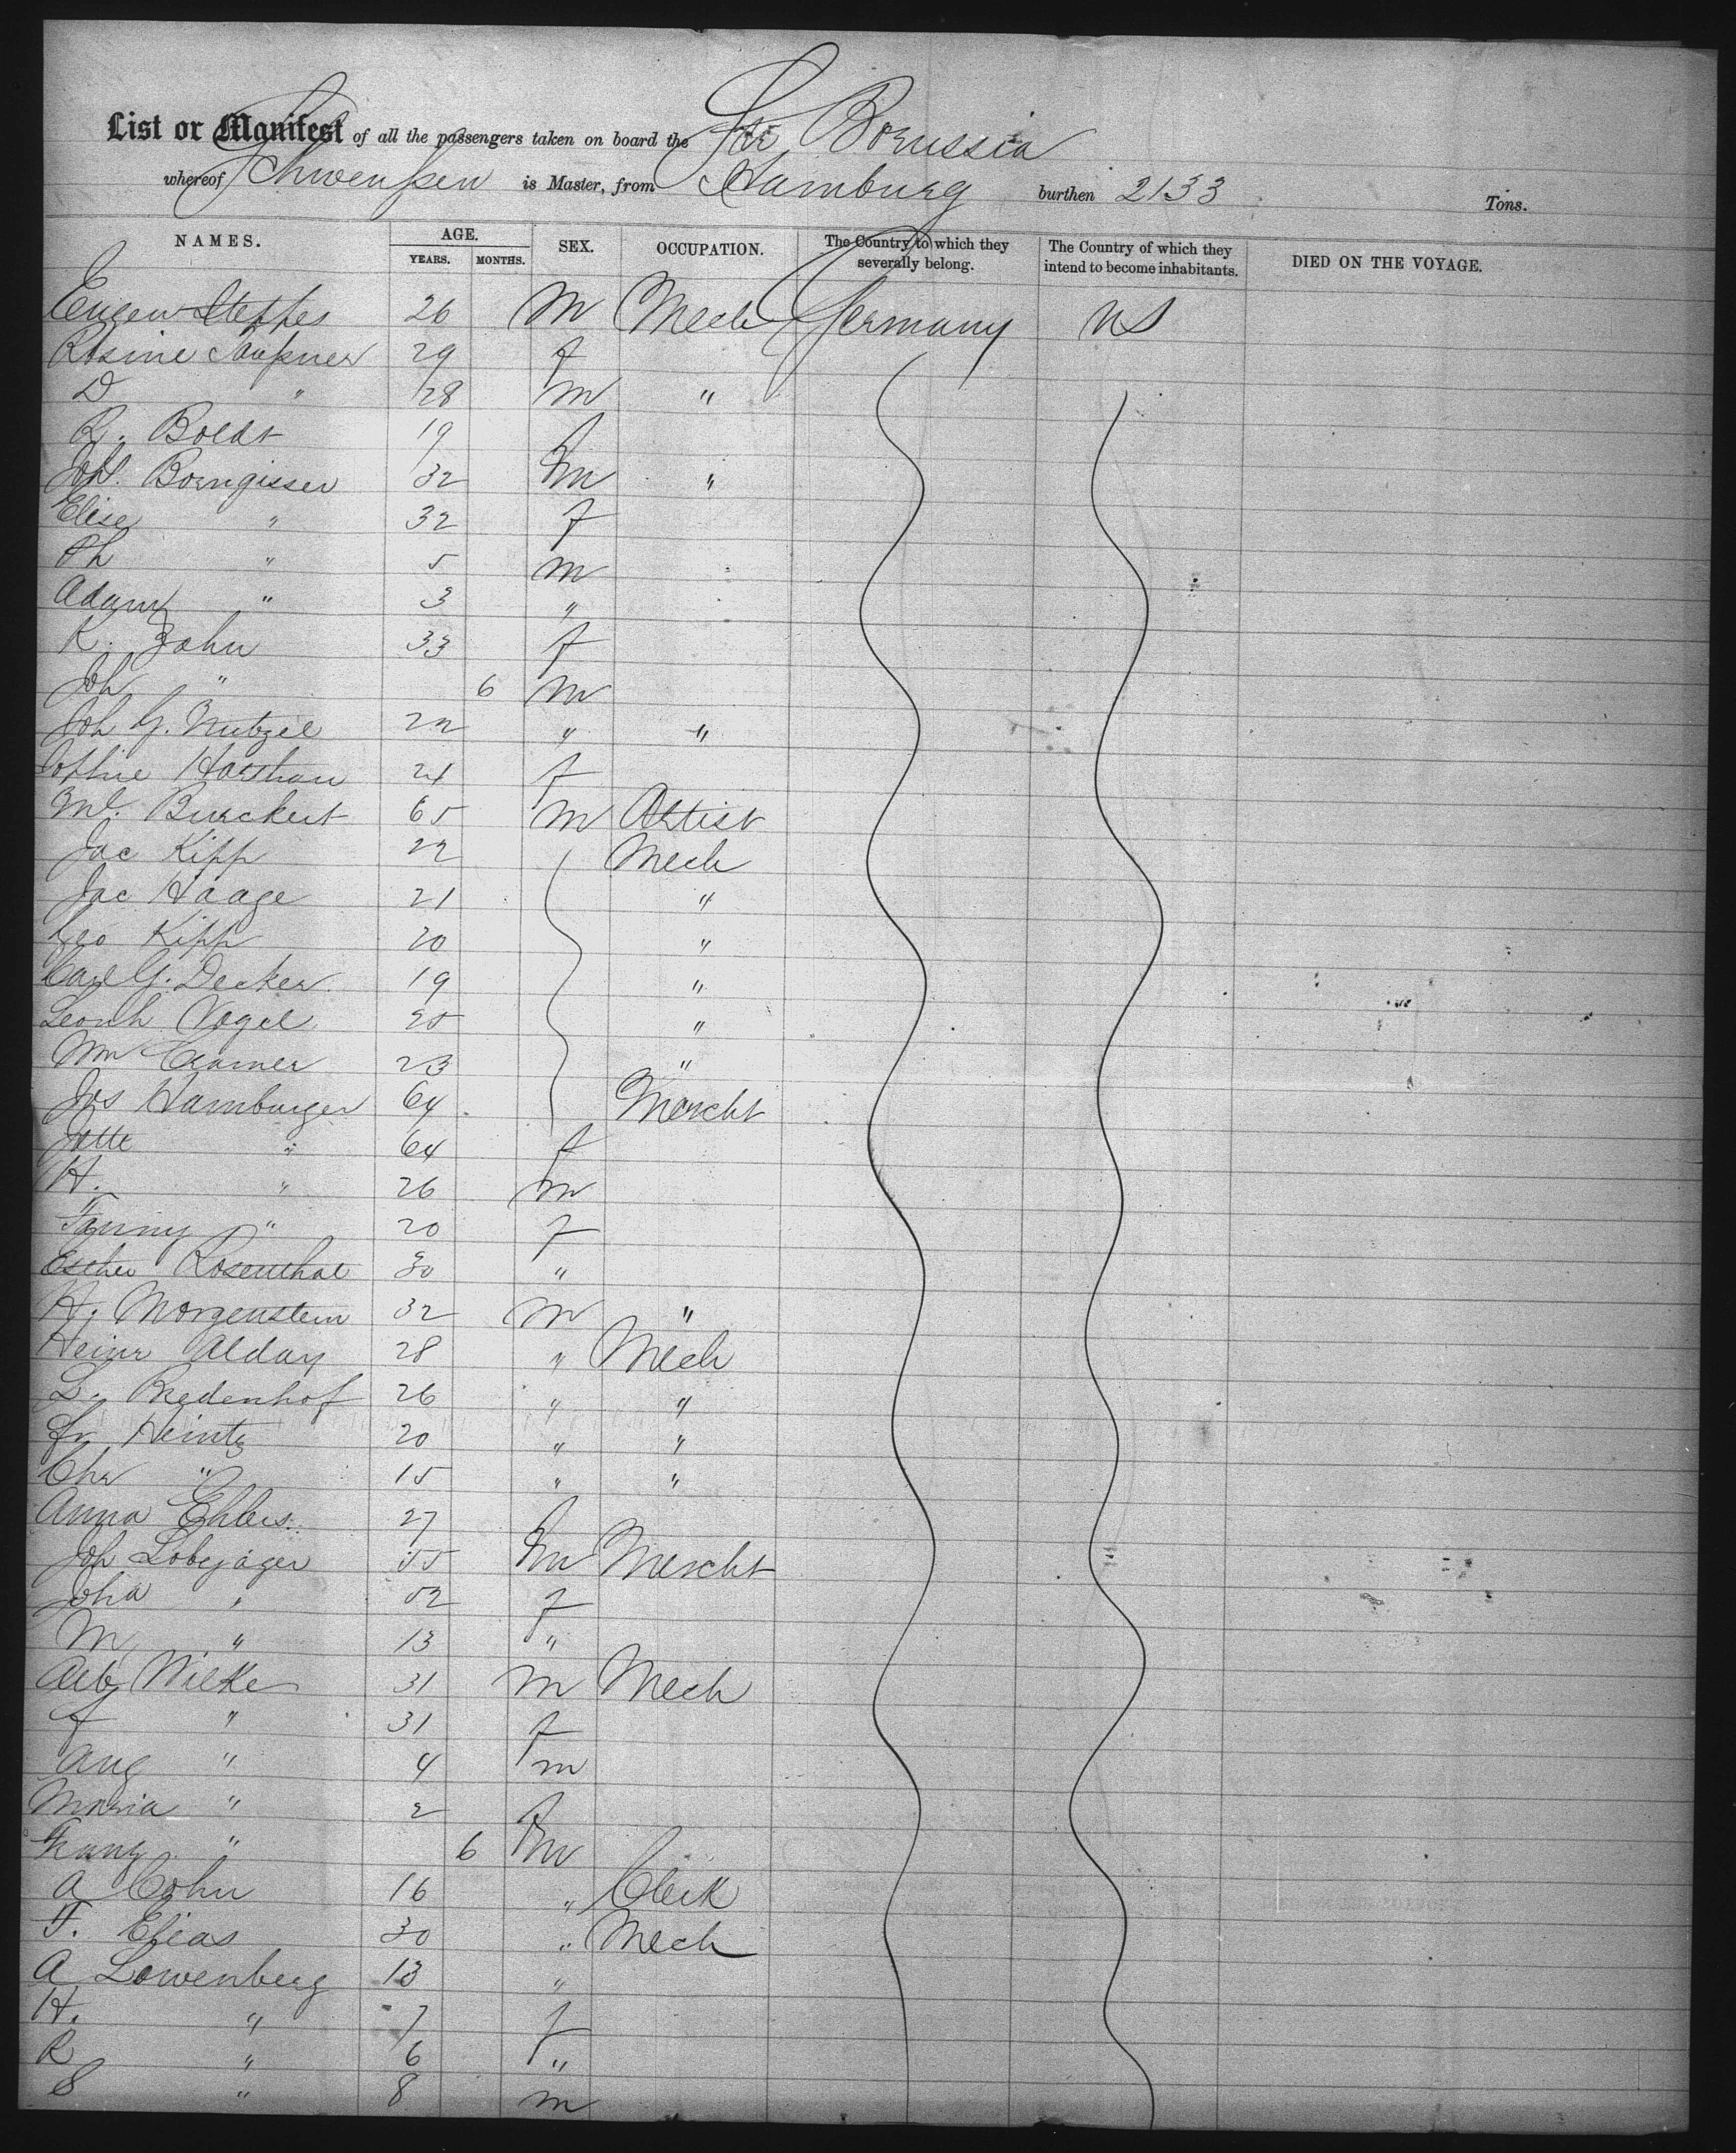 List or Manifest of all the passengers taken on board the Str Borussia
whereof Schwensen is Master, from Hamburg burthen 2133 Tons.
NAMES. AGE. SEX. OCCUPATION. The Country to which they severally belong. The Country of which they intend to become inhabitants. DIED ON THE VOYAGE.
YEARS. MONTHS.
Eugen Steppes 26 m Mech Germany US
Rosine 29 f
D " 28 m "
R. Boldt 19 f
Joh. Borngisser 32 m "
Elise " 32 f
Ph " 5 m
Adam " 3 "
K. Zahn 33 f
Joh " 6 m
Joh G. 22 " "
Sophie 21 f
Ml. Burckert 65 m Artist
Jac Kipp 22 Mech
Jac Haage 21 "
Geo Kipp 20 "
Carl G. Decker 19 "
Leonh Vogel 25 "
Wm Cramer 23 "
Jos Hamburger 64 Mercht
Jette " 64 f
H. " 26 m
Fanny " 20 f
Esther Rosenthal 30 "
H. Morgenstern 32 m "
Heinr Alday 28 " Mech
L. Bredenhof 26 " "
Fr Heintz 20 " "
Chr " 15 " "
Anna Ehlers 27 f
Joh Lobejäger 55 m Mercht
Joha " 52 f
M " 13 "
Alb Wilke 31 m Mech
F " 31 f
Aug " 4 m
Maria " 2 f
Franz " 6 m
A Cohn 16 " Clerk
F. Elias 30 " Mech
A Lowenberg 13 "
H. " 7 f
R " 6 "
S " 8 m